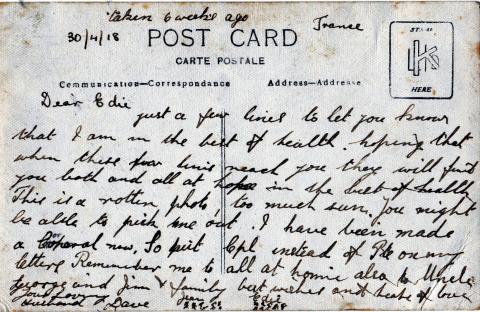 taken 6 weeks ago
30/4/18
France
POST CARD
CARTE POSTALE
STAMP
HERE
Communication—Correspondance
Address—Addresse
Dear Edie
just a few lines to let you know
that I am in the best of health. hoping that
when these few lines reach you they will find
you both and all at home in the best of health
This is a rotten photo, too much sun, you might
be able to pick me out. I have been made
a Corporal now, So put Cpl instead of Pte on my
letters Remember me to all at home also to Uncle
George and Jim & family best wishes and heaps of love
Your loving
husband Dave
Edie